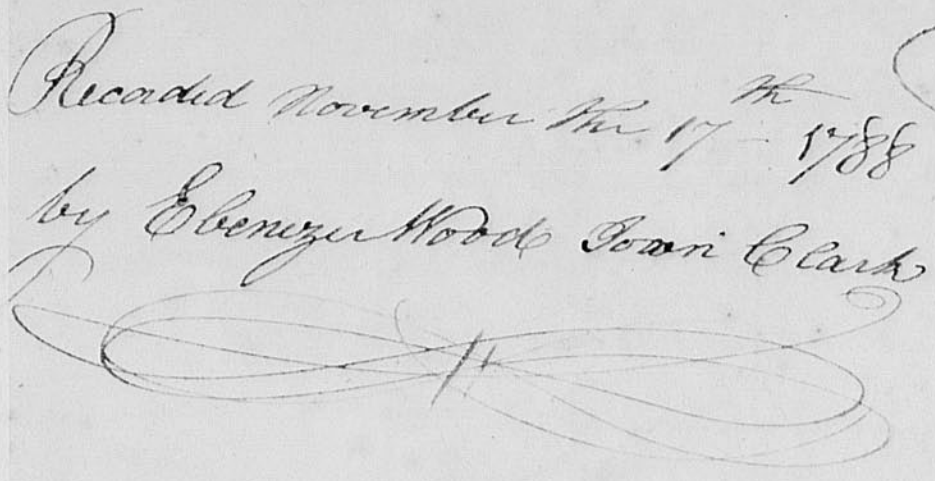 Recorded November the 17th 1788
by Ebenezer Wood Town Clark